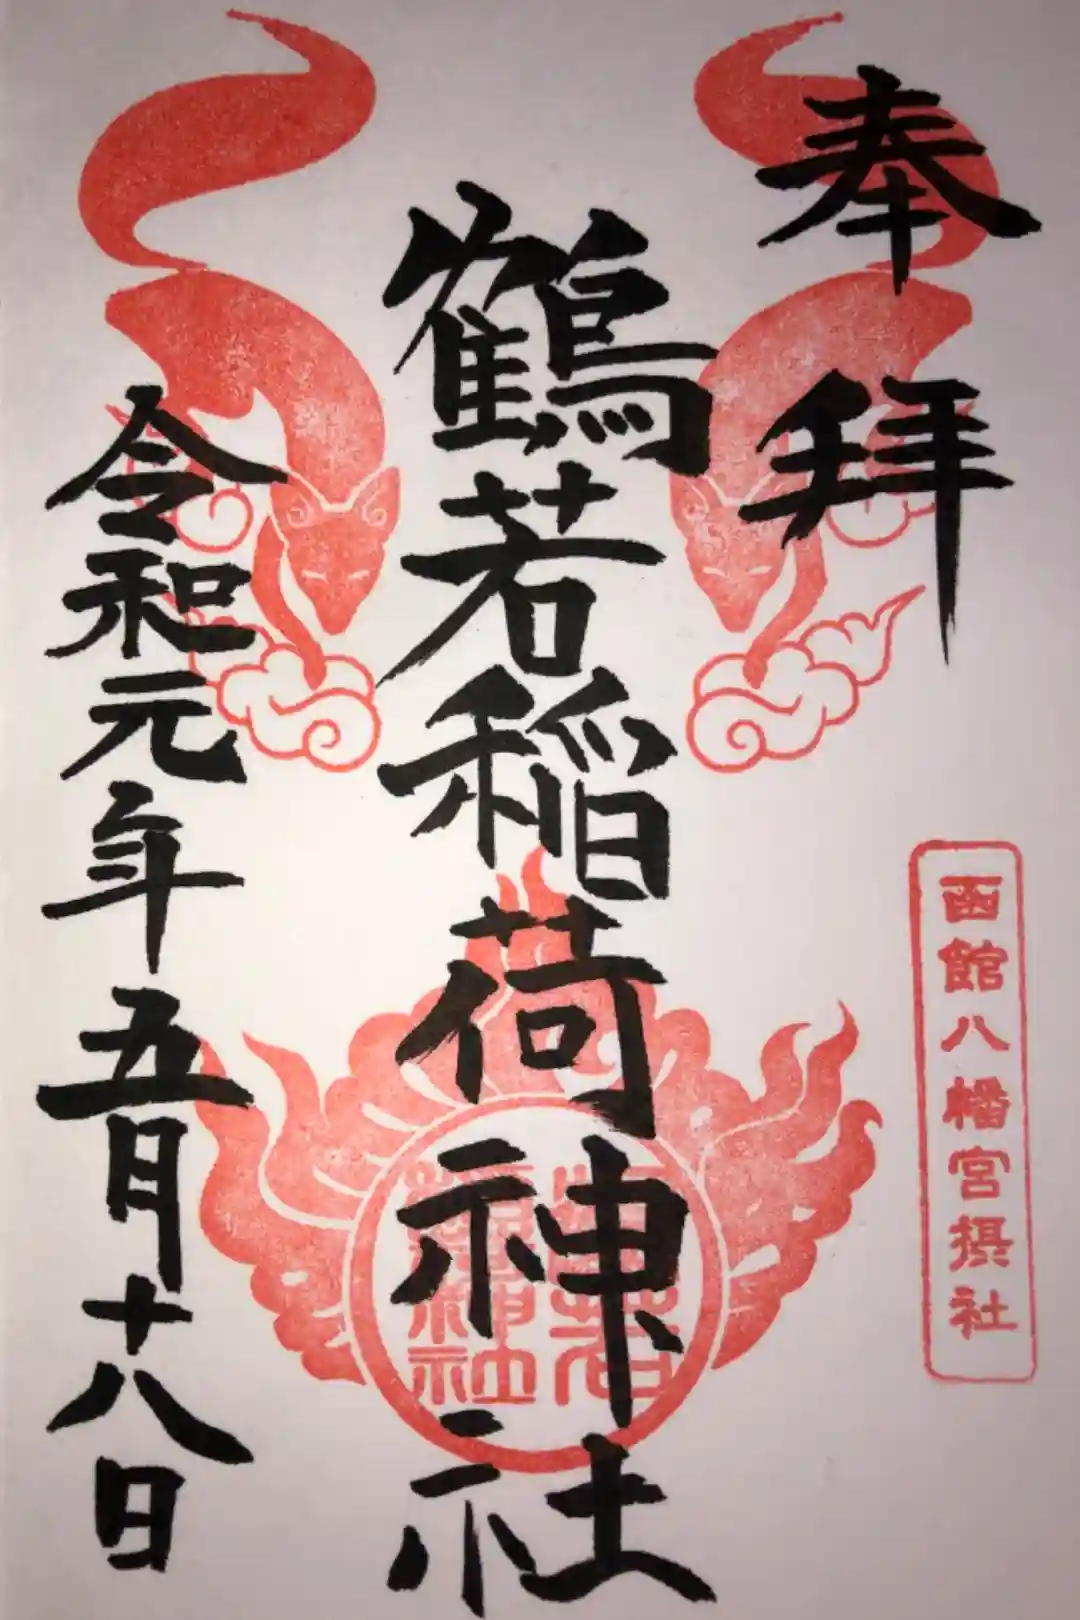 奉拝
函館八幡宮摂社
鶴若稲荷神社
鶴若
稲荷神社
令和元年五月十八日